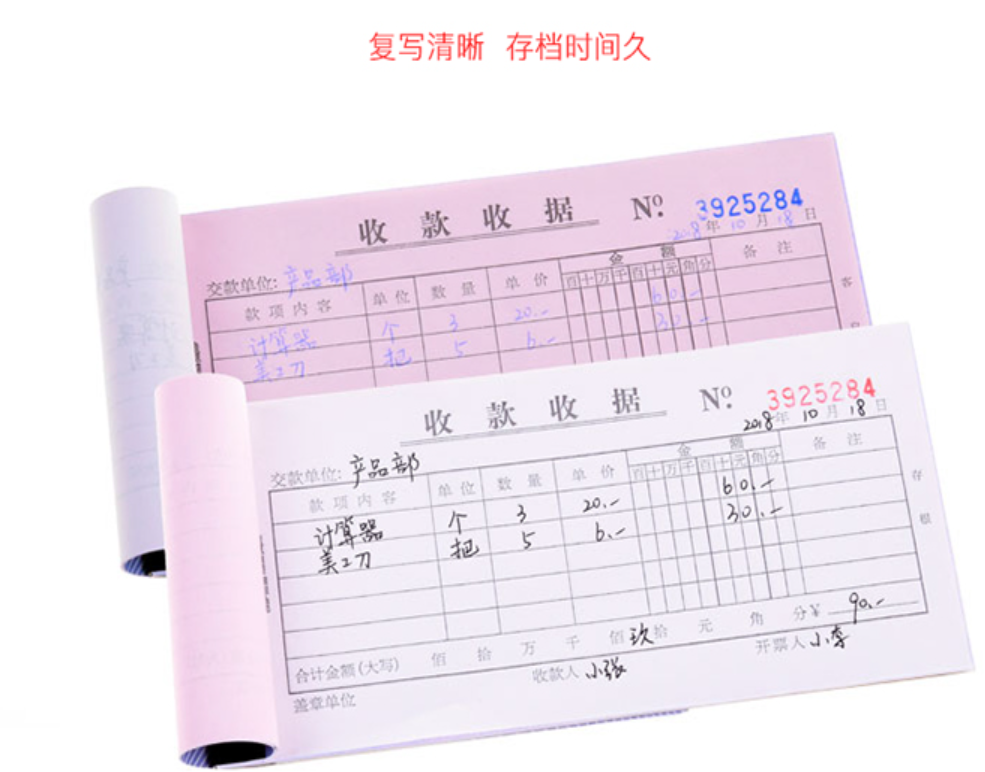 复写清晰 存档时间久
收款收据 Nº 3925284
2018年10月18日
交款单位: 产品部
款项内容 单位 数量 单价 金额 备注
百十万千百十元角分
计算器 个 3 20.- 60.-
美工刀 把 5 6.- 30.-
客
收款收据 Nº 3925284
2018年10月18日
交款单位: 产品部
款项内容 单位 数量 单价 金额 备注
百十万千百十元角分
计算器 个 3 20.- 60.-
美工刀 把 5 6.- 30.-
存根
合计金额(大写) 佰 拾 万 千 佰 玖拾 元 角 分¥ 90.-
盖章单位 收款人 小张 开票人 小李